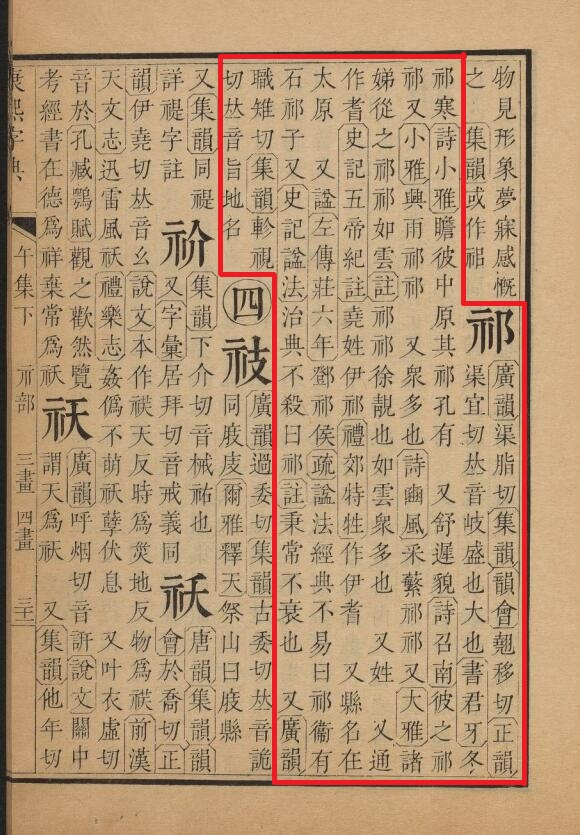 物見形象夢寐感慨
之 集韻或作𥘹
祁
廣韻渠脂切集韻韻會翹移切正韻
渠宜切𠀤音岐盛也大也書君牙冬
祁寒詩小雅瞻彼中原其祁孔有 又舒遲貌詩召南彼之祁
祁又小雅興雨祁祁 又衆多也詩豳風采蘩祁祁又大雅諸
娣從之祁祁如雲註祁祁徐靚也如雲衆多也 又姓 又通
作耆史記五帝紀註堯姓伊祁禮郊特牲作伊耆 又縣名在
太原 又諡左傳莊六年鄧祁侯疏諡法經典不易曰祁衞有
石祁子又史記諡法治典不殺曰祁註秉常不衰也 又廣韻
職雉切集韻軫視
切𠀤音旨地名
四
䃽
廣韻過委切集韻古委切𠀤音詭
同庪庋爾雅釋天祭山曰庪縣
又集韻同禔
詳禔字註
祄
集韻下介切音械祐也
又字彙居拜切音戒義同
祅
唐韻集韻韻
會於喬切正
韻伊堯切𠀤音幺說文本作䄏天反時爲災地反物爲䄏前漢
天文志迅雷風祅禮樂志姦僞不萌祅孽伏息 又叶衣虛切
音於孔臧鴞賦觀之歡然覽
考經書在德爲祥棄常爲祅
祆
廣韻呼烟切音訮說文關中
謂天爲祆 又集韻他年切
康熙字典 午集下 示部 三畫 四畫